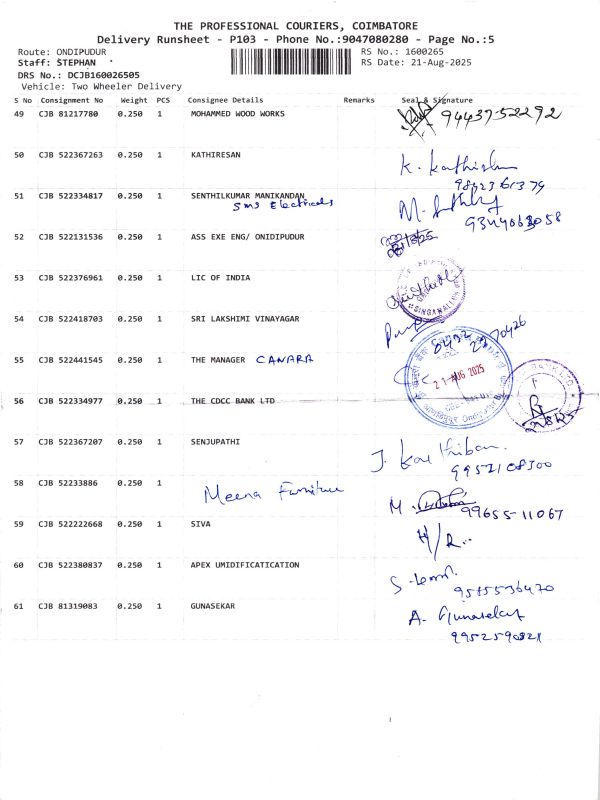 THE PROFESSIONAL COURIERS, COIMBATORE
Delivery Runsheet - P103 - Phone No.:9047080280 - Page No.:5
Route: ONDIPUDUR
RS No.: 1600265
Staff: STEPHAN
RS Date: 21-Aug-2025
DRS No.: DCJB160026505
Vehicle: Two Wheeler Delivery
S No Consignment No Weight PCS Consignee Details Remarks Seal & Signature
49 CJB 81217780 0.250 1 MOHAMMED WOOD WORKS 94437-52292
50 CJB 522367263 0.250 1 KATHIRESAN K. Kathir
51 CJB 522334817 0.250 1 SENTHILKUMAR MANIKANDAN
SMS Electricals
52 CJB 522131536 0.250 1 ASS EXE ENG/ ONIDIPUDUR
53 CJB 522376961 0.250 1 LIC OF INDIA
54 CJB 522418703 0.250 1 SRI LAKSHIMI VINAYAGAR
55 CJB 522441545 0.250 1 THE MANAGER CANARA
21 AUG 2025
56 CJB 522334977 0.250 1 THE CDCC BANK LTD
57 CJB 522367207 0.250 1 SENJUPATHI
9952108300
58 CJB 52233886 0.250 1 Meena Furniture
M. 99655-11067
59 CJB 522222668 0.250 1 SIVA H/R..
60 CJB 522380837 0.250 1 APEX UMIDIFICATICATION
9585536470
61 CJB 81319083 0.250 1 GUNASEKAR A. Gunasekar